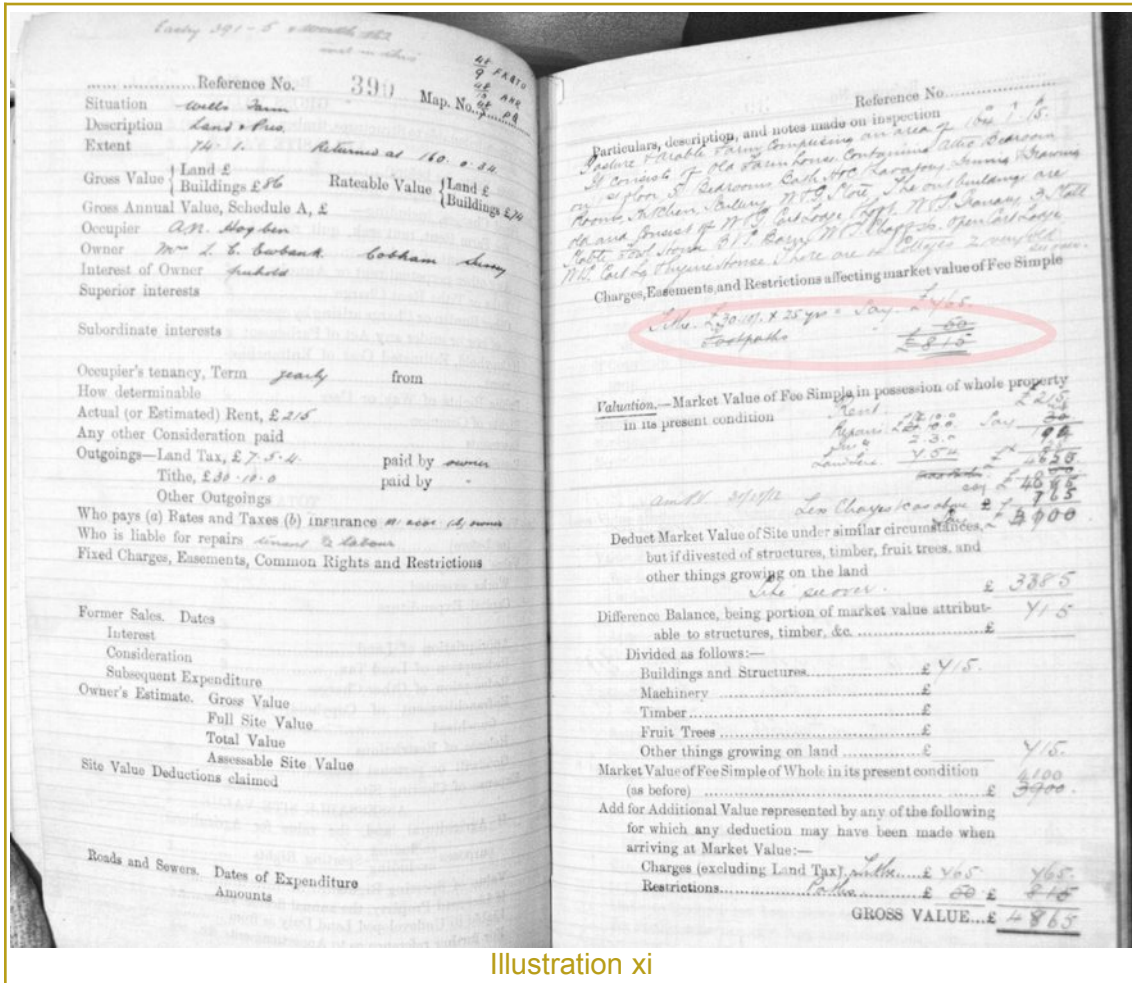 Reference No. 390 Map. No.
Situation Wells Farm
Description Land & Prem.
Extent 74 . 1. Returned at 160. 0. 34.
Gross Value { Land £
Buildings £86 Rateable Value { Land £
{ Buildings £74
Gross Annual Value, Schedule A, £
Occupier A.N. Hogben
Owner Mrs L. C. Ewbank. Cobham Surrey
Interest of Owner freehold
Superior interests
Subordinate interests
Occupier's tenancy, Term yearly from
How determinable
Actual (or Estimated) Rent, £ 215
Any other Consideration paid
Outgoings—Land Tax, £ 7. 5. 4. paid by owner
Tithe, £30 . 10. 0 paid by "
Other Outgoings
Who pays (a) Rates and Taxes (b) insurance
Who is liable for repairs tenant ½ labour
Fixed Charges, Easements, Common Rights and Restrictions
Former Sales. Dates
Interest
Consideration
Subsequent Expenditure
Owner's Estimate. Gross Value
Full Site Value
Total Value
Assessable Site Value
Site Value Deductions claimed
Roads and Sewers. Dates of Expenditure
Amounts
Reference No.
Particulars, description, and notes made on inspection
Pasture & arable Farm Comprising an area of 164. 1. 15.
It consists of old Farmhouse Containing Attic Bedroom
on 1st floor 5 Bedrooms Bath H&C Lavatory Dining & Drawing
Room, Kitchen, Scullery The outbuildings are
old and Consist of Cart Lodge Granary, 3 Stall
Stable Barn open Cart Lodge
House There are 4 Cottages 2 very old
Charges, Easements, and Restrictions affecting market value of Fee Simple
Tithe. £30.10/. x 25 yrs = Say £765.
Footpaths 50
£815
Valuation.—Market Value of Fee Simple in possession of whole property
in its present condition
Rent £215.
Repairs Say
Less Charges as above £ 765
£
Deduct Market Value of Site under similar circumstances,
but if divested of structures, timber, fruit trees, and
other things growing on the land
see over. £ 3385
Difference Balance, being portion of market value attribut-
able to structures, timber, &c. £ 715
Divided as follows:—
Buildings and Structures £ 715.
Machinery £
Timber £
Fruit Trees £
Other things growing on land £ 715.
Market Value of Fee Simple of Whole in its present condition 4100
(as before) £ 3900.
Add for Additional Value represented by any of the following
for which any deduction may have been made when
arriving at Market Value:—
Charges (excluding Land Tax), Tithe £ 765 765.
Restrictions Paths £ 50 £ 815
GROSS VALUE...£ 4865
Illustration xi